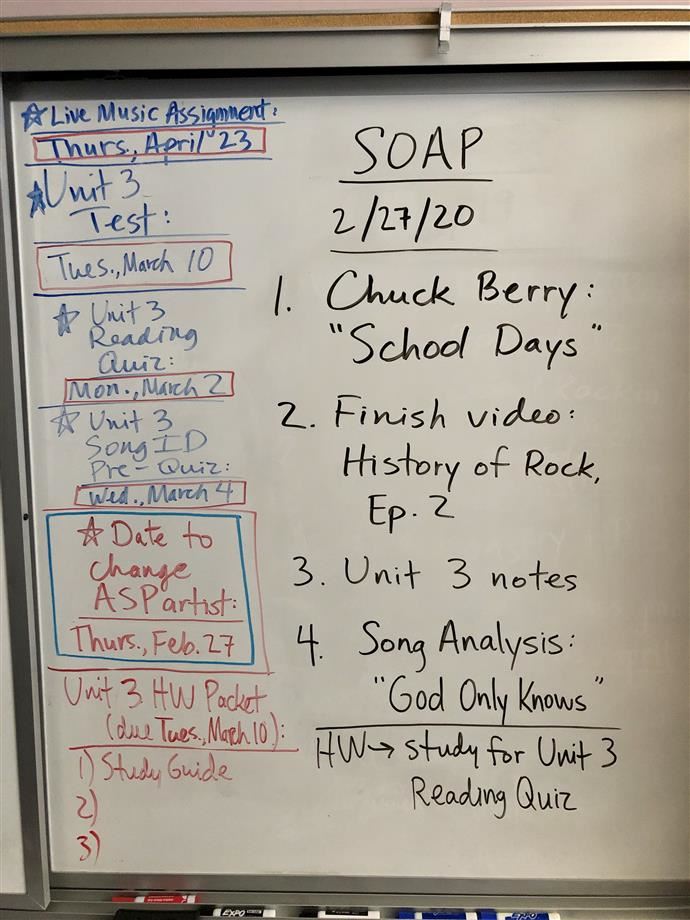 ☆ Live Music Assignment:
Thurs., April 23
☆ Unit 3
Test:
Tues., March 10
☆ Unit 3
Reading
Quiz:
Mon., March 2
☆ Unit 3
Song ID
Pre-Quiz:
Wed., March 4
☆ Date to
change
ASP artist:
Thurs., Feb. 27
Unit 3 HW Packet
(due Tues., March 10):
1) Study Guide
2)
3)
SOAP
2/27/20
1. Chuck Berry:
"School Days"
2. Finish video:
History of Rock,
Ep. 2
3. Unit 3 notes
4. Song Analysis:
"God Only Knows"
HW → study for Unit 3
Reading Quiz
EXPO
EXPO